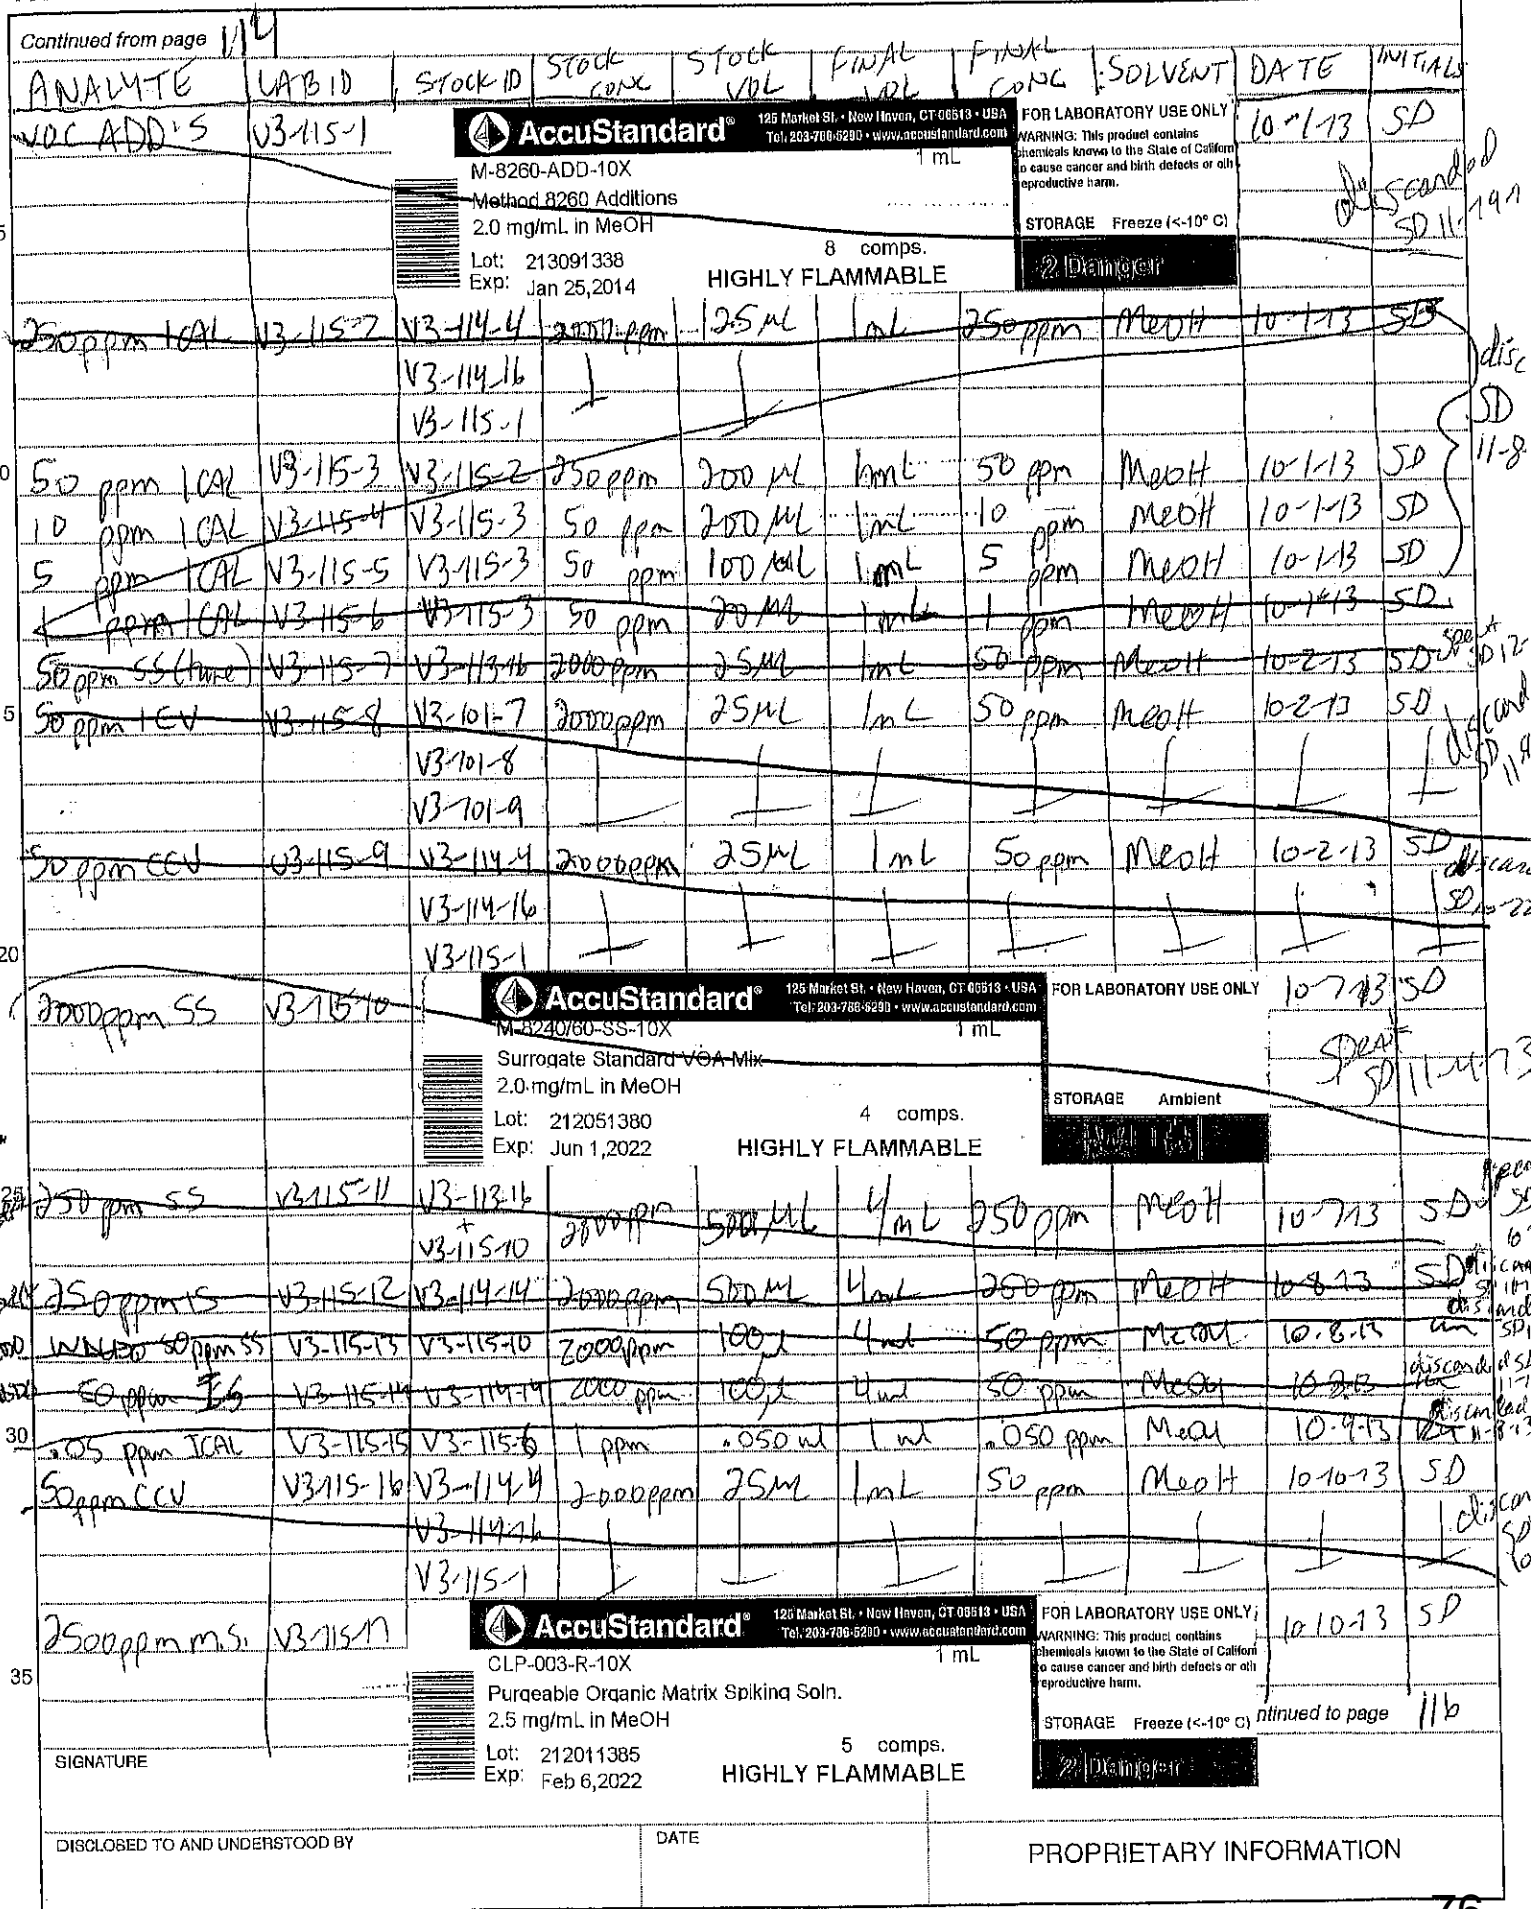 Continued from page 114
ANALYTE LAB ID STOCK ID STOCK CONC STOCK VOL FINAL VOL FINAL CONC SOLVENT DATE INITIALS
VOC ADD'S V3-115-1 10-1-13 SD
AccuStandard® 125 Market St. • New Haven, CT 06513 • USA
Tel. 203-786-5290 • www.accustandard.com
M-8260-ADD-10X 1 mL
Method 8260 Additions
2.0 mg/mL in MeOH
8 comps.
Lot: 213091338
HIGHLY FLAMMABLE
Exp: Jan 25,2014
FOR LABORATORY USE ONLY
WARNING: This product contains
chemicals known to the State of Californ
o cause cancer and birth defects or oth
eproductive harm.
STORAGE Freeze (<-10° C)
2 Danger
discarded
SD 11-19-1
250 ppm ICAL V3-115-2 V3-114-4 2000 ppm 125 µL 1 mL 250 ppm MeOH 10-1-13 SD
V3-114-16
V3-115-1
disc
SD
11-8
50 ppm ICAL V3-115-3 V3-115-2 250 ppm 200 µL 1 mL 50 ppm MeOH 10-1-13 SD
10 ppm ICAL V3-115-4 V3-115-3 50 ppm 200 µL 1 mL 10 ppm MeOH 10-1-13 SD
5 ppm ICAL V3-115-5 V3-115-3 50 ppm 100 µL 1 mL 5 ppm MeOH 10-1-13 SD
1 ppm ICAL V3-115-6 V3-115-3 50 ppm 20 µL 1 mL 1 ppm MeOH 10-1-13 SD
50 ppm SS V3-115-7 V3-113-16 2000 ppm 25 µL 1 mL 50 ppm MeOH 10-2-13 SD spent SD 12-
15 50 ppm ICV V3-115-8 V3-101-7 2000 ppm 25 µL 1 mL 50 ppm MeOH 10-2-13 SD
V3-101-8
V3-101-9
discard
SD
50 ppm CCV V3-115-9 V3-114-4 2000 ppm 25 µL 1 mL 50 ppm MeOH 10-2-13 SD
V3-114-16
discar
SD 10-22
20 V3-115-1
2000 ppm SS V3-115-10 10-7-13 SD
AccuStandard® 125 Market St. • New Haven, CT 06513 • USA
Tel. 203-786-5290 • www.accustandard.com
M-8240/60-SS-10X 1 mL
Surrogate Standard VOA Mix
2.0 mg/mL in MeOH
4 comps.
Lot: 212051380
HIGHLY FLAMMABLE
Exp: Jun 1,2022
FOR LABORATORY USE ONLY
STORAGE Ambient
spent
SD 11-4-13
25 250 ppm SS V3-115-11 V3-113-16 + V3-115-10 2000 ppm 500 µL 4 mL 250 ppm MeOH 10-7-13 SD
250 ppm IS V3-115-12 V3-114-14 2000 ppm 500 µL 4 mL 250 ppm MeOH 10-8-13 SD
50 ppm SS V3-115-13 V3-115-10 2000 ppm 100µl 4 ml 50 ppm MeOH 10.8.13
50 ppm IS V3-115-14 V3-114-14 2000 ppm 100µl 4 ml 50 ppm MeOH 10.8.13
30 .05 ppm ICAL V3-115-15 V3-115-6 1 ppm .050 ml 1 ml .050 ppm MeOH 10-9-13
50 ppm CCV V3-115-16 V3-114-4 2000 ppm 25 µL 1 mL 50 ppm MeOH 10-10-13 SD
V3-114-16
V3-115-1
discar
SD
2500 ppm m.s. V3-115-17 10-10-13 SD
35
AccuStandard® 125 Market St. • New Haven, CT 06513 • USA
Tel. 203-786-5290 • www.accustandard.com
CLP-003-R-10X 1 mL
Purgeable Organic Matrix Spiking Soln.
2.5 mg/mL in MeOH
5 comps.
Lot: 212011385
HIGHLY FLAMMABLE
Exp: Feb 6,2022
FOR LABORATORY USE ONLY
WARNING: This product contains
chemicals known to the State of Californ
o cause cancer and birth defects or oth
eproductive harm.
STORAGE Freeze (<-10° C)
2 Danger
ntinued to page 116
SIGNATURE
DISCLOSED TO AND UNDERSTOOD BY
DATE
PROPRIETARY INFORMATION
76